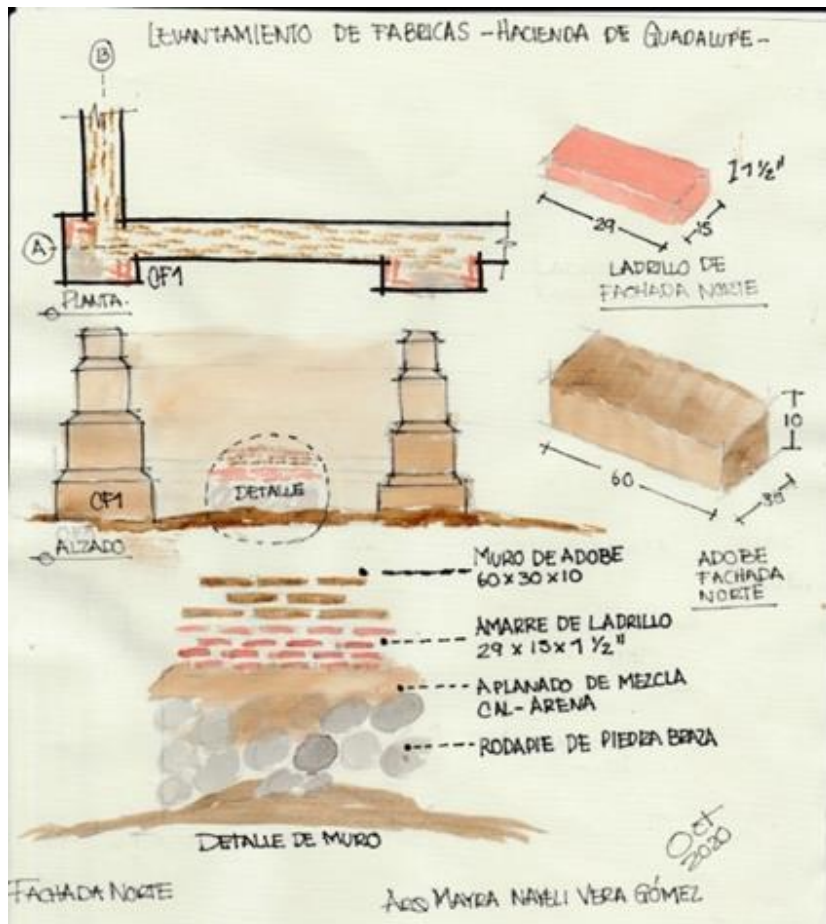 LEVANTAMIENTO DE FABRICAS - HACIENDA DE GUADALUPE -
B
A
CF1
PLANTA.
1 1/2"
29
15
LADRILLO DE
FACHADA NORTE
CF1
DETALLE
ALZADO
10
60
30
ADOBE
FACHADA
NORTE
MURO DE ADOBE
60 x 30 x 10
AMARRE DE LADRILLO
29 x 15 x 1 1/2"
APLANADO DE MEZCLA
CAL-ARENA
RODAPIE DE PIEDRA BRAZA
DETALLE DE MURO
Oct
2020
FACHADA NORTE
MAYRA NAYELI VERA GÓMEZ